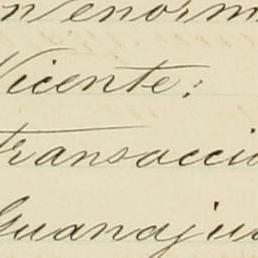 n enorm
Vicente:
transacci
Guanaju